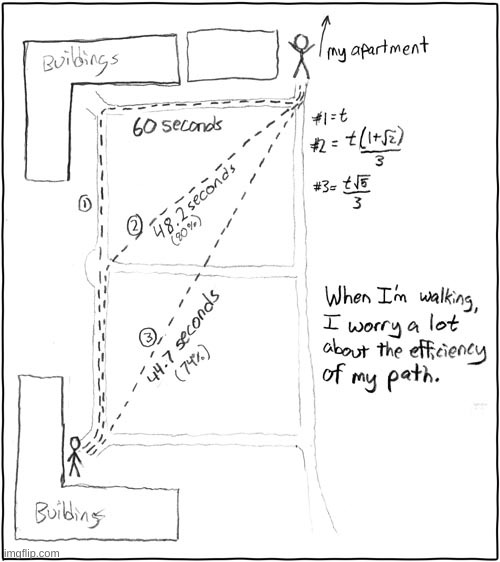 Buildings
my apartment
60 seconds
#1=t
#2= t(1+√2)/3
#3= t√5/3
①
②
48.2 seconds
(80%)
③
44.7 seconds
(74%)
When I'm walking,
I worry a lot
about the efficiency
of my path.
Buildings
imgflip.com